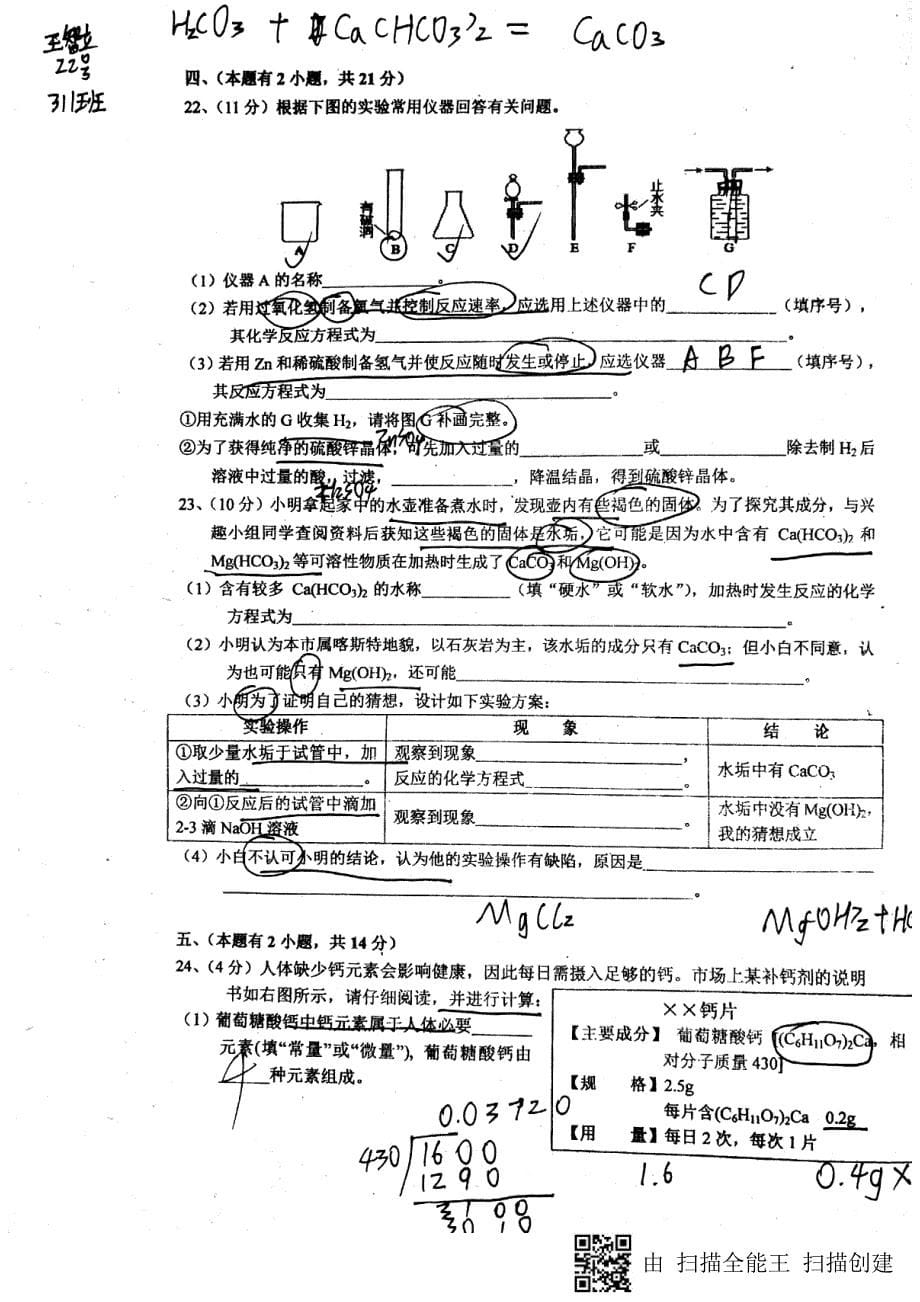 H₂CO₃ + Ca(HCO₃)₂ = CaCO₃
王智立
22号
311班
四、（本题有2小题，共21分）
22、（11分）根据下图的实验常用仪器回答有关问题。
有破洞
止水夹
A B C D E F G
（1）仪器A的名称____________。
（2）若用过氧化氢制备氧气并控制反应速率，应选用上述仪器中的____CD____（填序号），
其化学反应方程式为____________。
（3）若用Zn和稀硫酸制备氢气并使反应随时发生或停止，应选仪器 A B F （填序号），
其反应方程式为____________。
①用充满水的G收集H₂，请将图G补画完整。
ZnSO₄
②为了获得纯净的硫酸锌晶体，可先加入过量的____________或____________除去制H₂后
溶液中过量的酸，过滤，____________，降温结晶，得到硫酸锌晶体。
H₂SO₄
23、（10分）小明拿起家中的水壶准备煮水时，发现壶内有些褐色的固体。为了探究其成分，与兴
趣小组同学查阅资料后获知这些褐色的固体是水垢，它可能是因为水中含有 Ca(HCO₃)₂ 和
Mg(HCO₃)₂等可溶性物质在加热时生成了CaCO₃和Mg(OH)₂。
（1）含有较多 Ca(HCO₃)₂ 的水称________（填“硬水”或“软水”），加热时发生反应的化学
方程式为____________。
（2）小明认为本市属喀斯特地貌，以石灰岩为主，该水垢的成分只有CaCO₃；但小白不同意，认
为也可能只有Mg(OH)₂，还可能____________。
（3）小明为了证明自己的猜想，设计如下实验方案：
实验操作 现 象 结 论
①取少量水垢于试管中，加入过量的____________。 观察到现象____________， 反应的化学方程式____________。 水垢中有CaCO₃
②向①反应后的试管中滴加2-3滴NaOH溶液 观察到现象____________。 水垢中没有Mg(OH)₂，我的猜想成立
（4）小白不认可小明的结论，认为他的实验操作有缺陷，原因是____________
____________。
MgCl₂ MgOH₂+HC
五、（本题有2小题，共14分）
24、（4分）人体缺少钙元素会影响健康，因此每日需摄入足够的钙。市场上某补钙剂的说明
书如右图所示，请仔细阅读，并进行计算：
（1）葡萄糖酸钙中钙元素属于人体必要________
元素(填“常量”或“微量”)，葡萄糖酸钙由
4 种元素组成。
××钙片
【主要成分】 葡萄糖酸钙 [(C₆H₁₁O₇)₂Ca，相
对分子质量430]
【规 格】2.5g
每片含(C₆H₁₁O₇)₂Ca 0.2g
【用 量】每日2次，每次1片
0.03720
430 1600
1290
3100
3010
1.6 0.4g×
由 扫描全能王 扫描创建